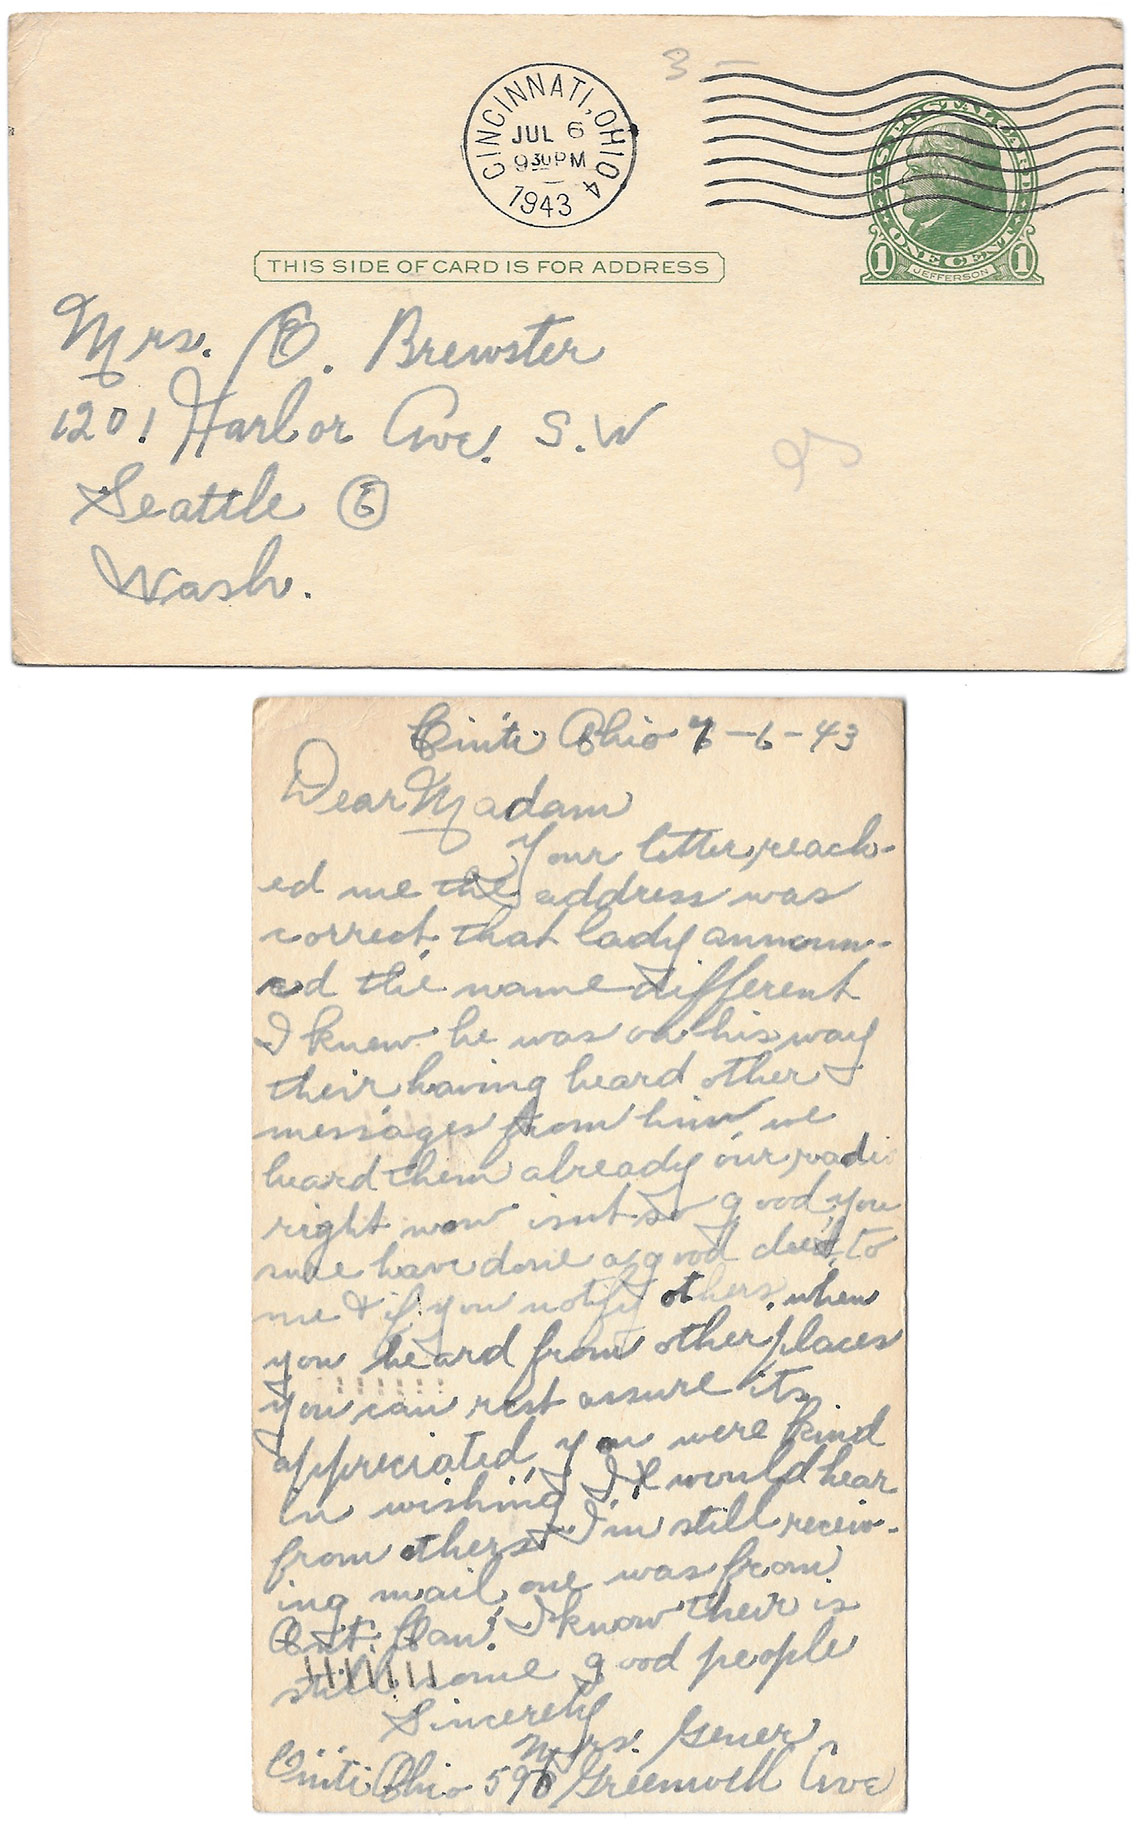 3 —
CINCINNATI, OHIO 4
JUL 6
9 30 PM
1943
U.S. POSTAL CARD
ONE CENT
1 JEFFERSON 1
THIS SIDE OF CARD IS FOR ADDRESS
Mrs. O. Brewster
1201 Harbor Ave. S.W
Seattle 6
Wash.
Cin'ti Ohio 7-6-43
Dear Madam
Your letter, reach-
ed me the address was
correct that lady announ-
ced the name different
I knew he was on his way
their having heard other
messages from him we
heard them already our radi
right now isnt so good, you
sure have done a good deed to
me & if you notify others when
you heard from other places
you can rest assure its
appreciated, you were kind
in wishing I would hear
from others & I'm still receiv-
ing mail, one was from
Ont. Can. I know their is
still some good people
Sincerely
Mrs. Gener
Cin'ti Ohio 590 Greenwell Ave